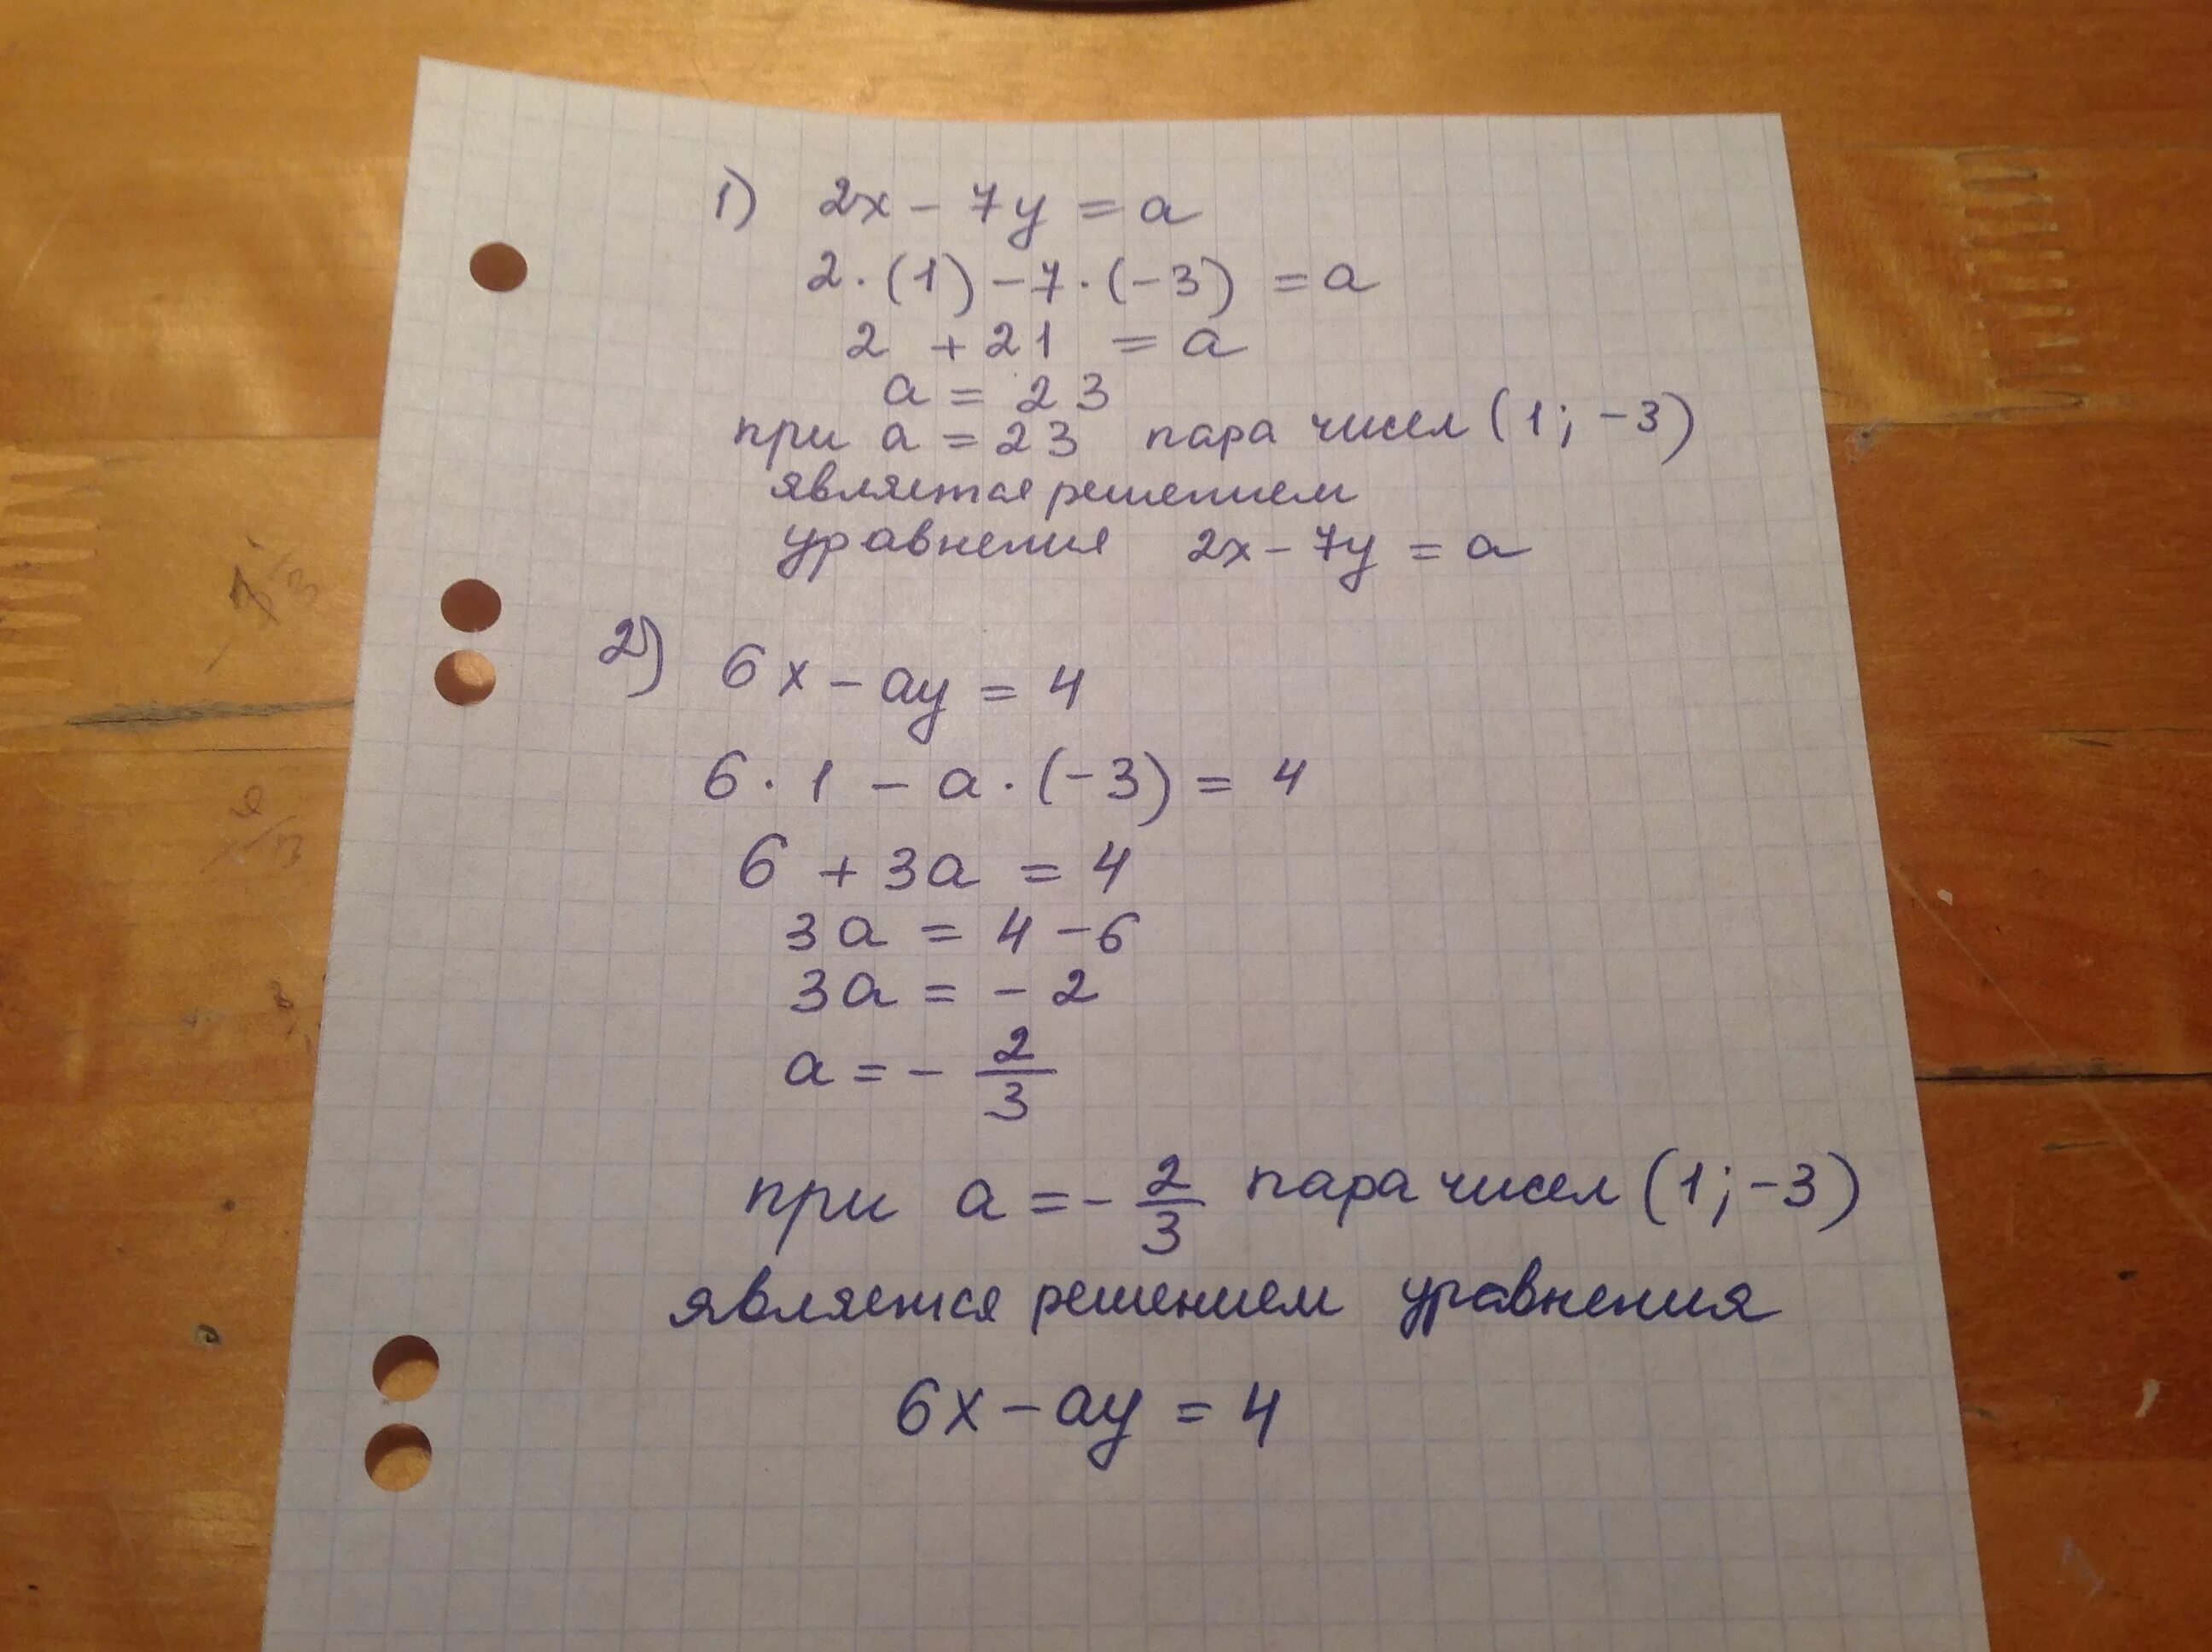 1) 2x - 7y = a
2 · (1) - 7 · (-3) = a
2 + 21 = a
a = 23
при a = 23 пара чисел (1; -3)
является решением
уравнения 2x - 7y = a
2) 6x - ay = 4
6 · 1 - a · (-3) = 4
6 + 3a = 4
3a = 4 - 6
3a = - 2
a = - 2/3
при a = - 2/3 пара чисел (1; -3)
является решением уравнения
6x - ay = 4